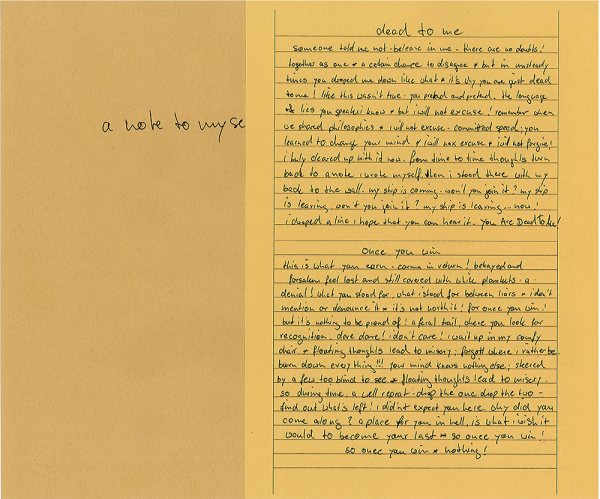 a note to myse
dead to me
someone told me not - beleave in me - there are no doubts!
together as one * a certain chance to disagree * but in unsteady
times you droped me down like what * it's why you are just dead
to me! like this wasn't true - you pretend and pretend. the language
& lies you speak i know * but i will not excuse! remember when
we shared philosophies * i will not excuse - committed speed; you
learned to change your mind & i will not excuse & i will not forgive!
i truly cleared up with it now. from time to time thoughts turn
back to a note i wrote myself, then i stood there with my
back to the wall - my ship is coming - won't you join it? my ship
is leaving, won't you join it? my ship is leaving... now!
i droped a line i hope that you can hear it. You Are Dead To Me!
once you win
this is what you earn - carma in return! betrayed and
forsaken feel lost and still covered with white blankets - a
denial! what you stood for, what i stood for between liars * i don't
mention or denounce it * it's not worth it! for once you win!
but it's nothing to be proud of! a feral trail, where you look for
recognition. dare dare! i don't care! i wait up in my comfy
chair * floating thoughts lead to misery; forgott where i rather be.
burn down everything!!! your mind knows nothing else; steered
by a few too blind to see * floating thoughts lead to misery.
so during time, a well repeat - drop the one drop the two -
find out what's left! i didn't expect you here. why did you
come along? a place for you in hell, is what i wish it
would to become your last * so once you win!
so once you win * nothing!